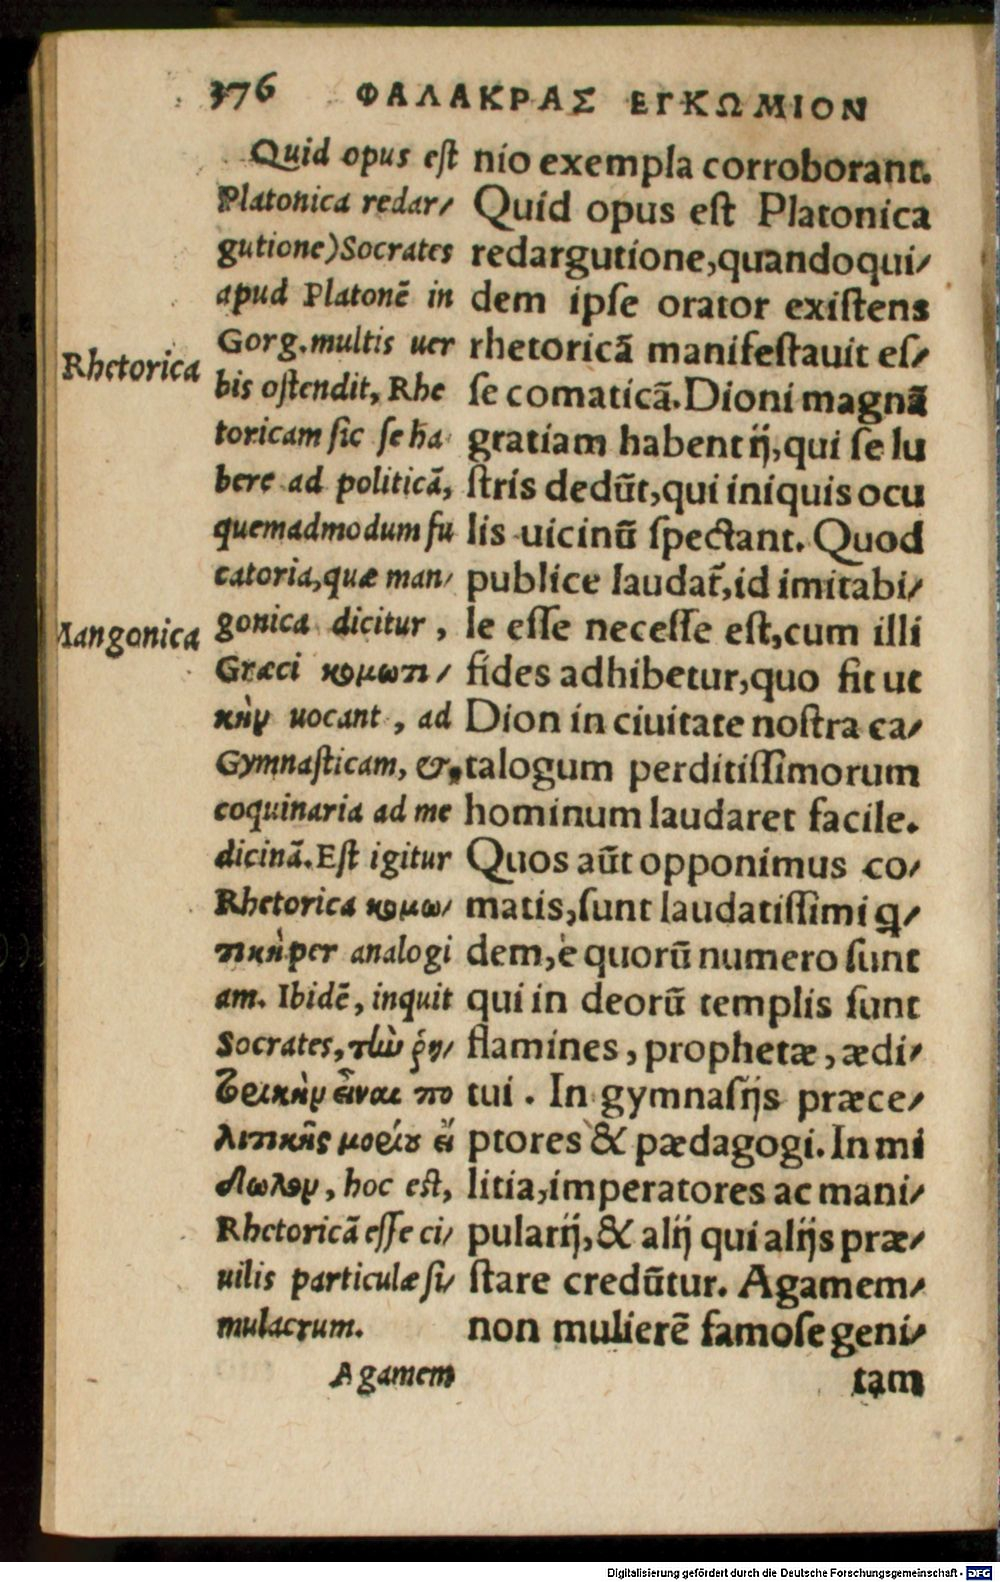 376 ΦΑΛΑΚΡΑΣ ΕΓΚΩΜΙΟΝ
Quid opus eſt
Platonica redar/
gutione)Socrates
apud Platonē in
Gorg.multis uer
bis oſtendit, Rhe
toricam ſic ſe ha
bere ad politicā,
quemadmodum fu
catoria,quæ man/
gonica dicitur,
Græci κομωτι/
κὴν uocant, ad
Gymnaſticam, &,
coquinaria ad me
dicinā.Eſt igitur
Rhetorica κομω/
τικὴ per analogi
am. Ibidē, inquit
Socrates, τὼ ῥη/
τρικὴν εἶναι πο
λιτικῆς μορίου εἴ
δωλον, hoc est,
Rhetoricā eſſe ci/
uilis particulæ ſi/
mulacrum.
Agamem
Rhetorica
Mangonica
nio exempla corroborant.
Quid opus eſt Platonica
redargutione,quandoqui/
dem ipſe orator exiſtens
rhetoricā manifeſtauit eſ/
ſe comaticā.Dioni magnā
gratiam habent ij,qui ſe lu
ſtris dedūt,qui iniquis ocu
lis uicinū ſpectant. Quod
publice laudat̃,id imitabi/
le eſſe neceſſe eſt,cum illi
fides adhibetur,quo fit ut
Dion in ciuitate noſtra ca/
talogum perditiſſimorum
hominum laudaret facile.
Quos aūt opponimus co/
matis,ſunt laudatiſſimi q/
dem,è quorū numero ſunt
qui in deorū templis ſunt
flamines, prophetæ, ædi/
tui. In gymnaſijs præce/
ptores & pædagogi. In mi
litia,imperatores ac mani/
pularij,& alij qui alijs præ/
ſtare credūtur. Agamem/
non mulierē famoſe geni/
tam
Digitalisierung gefördert durch die Deutsche Forschungsgemeinschaft - DFG